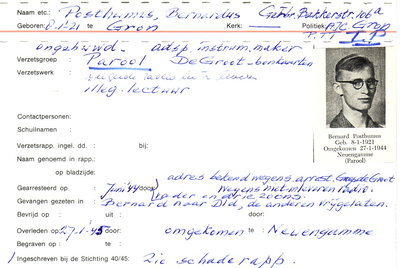 Naam etc.: Posthumus, Bernardus Gebr. Bakkerstr. 106a
Geboren: 8-1-'21 te Gron Kerk: Politiek: AJC Gron
ongehuwd. adsp. instrum. maker
Verzetsgroep : Parool De Groot-bonkaarten
Verzetswerk
illeg. lectuur
Contactpersonen:
Schuilnaam :
Verzetsrapp. ingel. dd. : bij:
Naam genoemd in rapp.:
op bladzijde:
adres bekend wegens arrest. Groot
Gearresteerd op : Juni '44 door: wegens niet-inleveren radio.
Gevangen gezeten in: vader en drie zoons.
Bernard naar Dld, de anderen vrijgelaten.
Bevrijd op : uit : door:
Overleden op : 27-1-'45 door: omgekomen te Neuengamme
Begraven op : te :
Ingeschreven bij de Stichting 40/45: Zie schaderapp.
Bernard Posthumus
Geb. 8-1-1921
Omgekomen 27-1-1944
Neuengamme
(Parool)